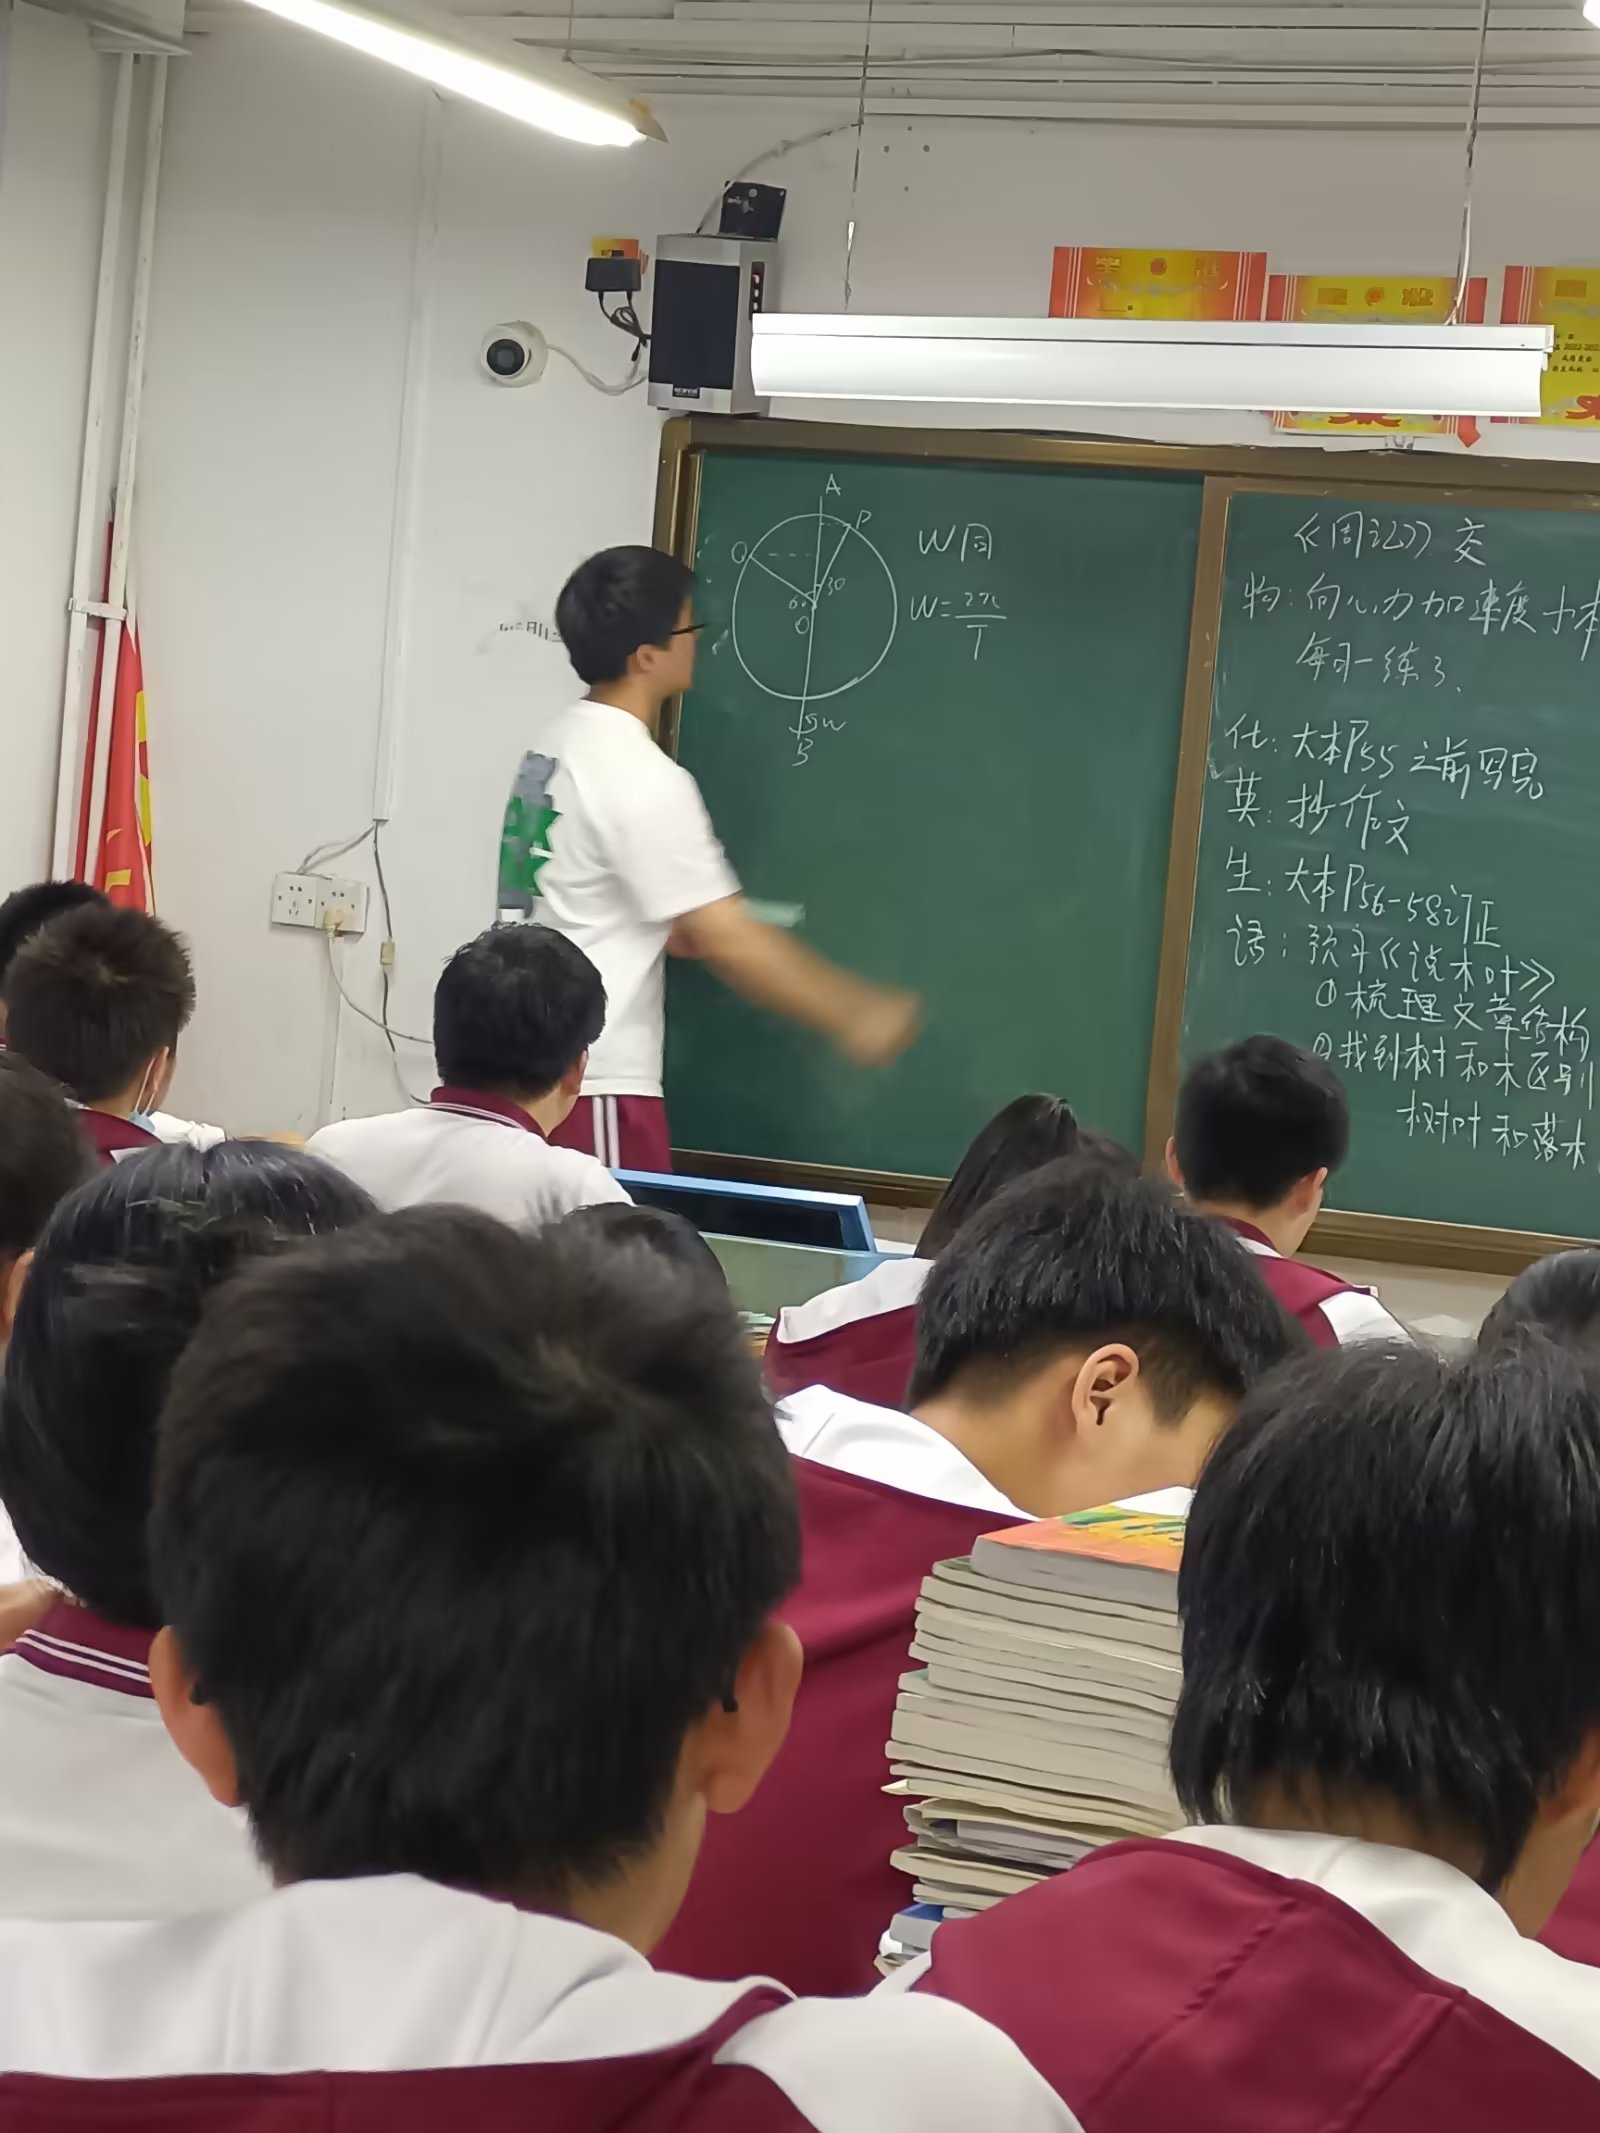 A
P
Q
30
60
O
ω
B
W同
W=2π/T
《周记》交
物:向心力加速度小本
每日一练3.
化:大本P55之前写完
英:抄作文
生:大本P56-58订正
语:预习《说木叶》
①梳理文章结构
②找到树和木区别
树叶和落木